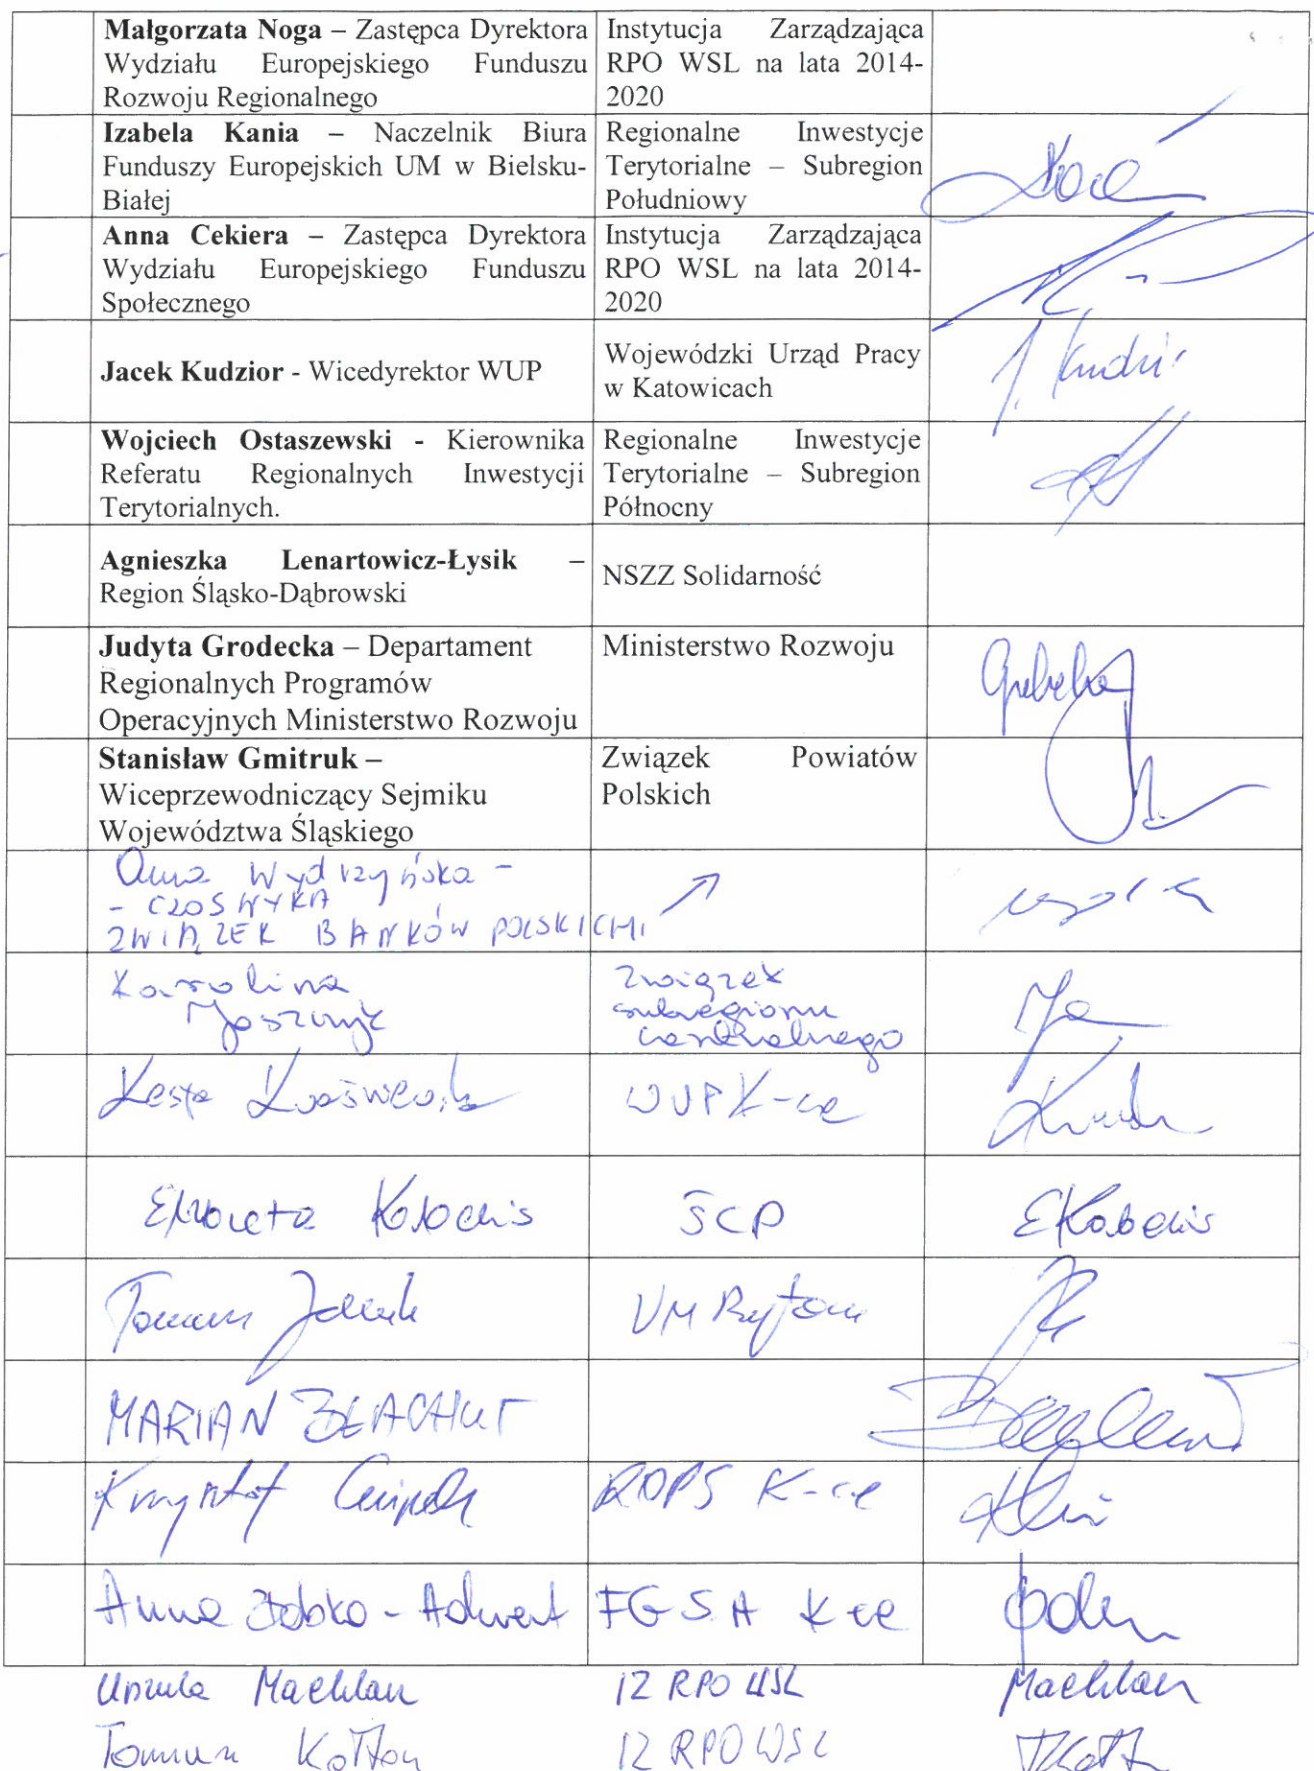 Małgorzata Noga – Zastępca Dyrektora
Wydziału Europejskiego Funduszu
Rozwoju Regionalnego
Instytucja Zarządzająca
RPO WSL na lata 2014-
2020
Izabela Kania – Naczelnik Biura
Funduszy Europejskich UM w Bielsku-
Białej
Regionalne Inwestycje
Terytorialne – Subregion
Południowy
Anna Cekiera – Zastępca Dyrektora
Wydziału Europejskiego Funduszu
Społecznego
Instytucja Zarządzająca
RPO WSL na lata 2014-
2020
Jacek Kudzior - Wicedyrektor WUP
Wojewódzki Urząd Pracy
w Katowicach
Wojciech Ostaszewski - Kierownika
Referatu Regionalnych Inwestycji
Terytorialnych.
Regionalne Inwestycje
Terytorialne – Subregion
Północny
Agnieszka Lenartowicz-Łysik –
Region Śląsko-Dąbrowski
NSZZ Solidarność
Judyta Grodecka – Departament
Regionalnych Programów
Operacyjnych Ministerstwo Rozwoju
Ministerstwo Rozwoju
Stanisław Gmitruk –
Wiceprzewodniczący Sejmiku
Województwa Śląskiego
Związek Powiatów
Polskich
Anna Wydrzyńska -
- CZOSNYKA
ZWIĄZEK BANKÓW POLSKICH
Karolina
Związek
subregionu
centralnego
WUP K-ce
Elżbieta
ŚCP
UM Bytom
MARIAN BŁACHUT
Krzysztof
ROPS K-ce
Anna Żobko - Adwent
FGSA K-ce
Urszula Machlan
IZ RPO WSL
Machlan
Tomasz Kołton
IZ RPO WSL